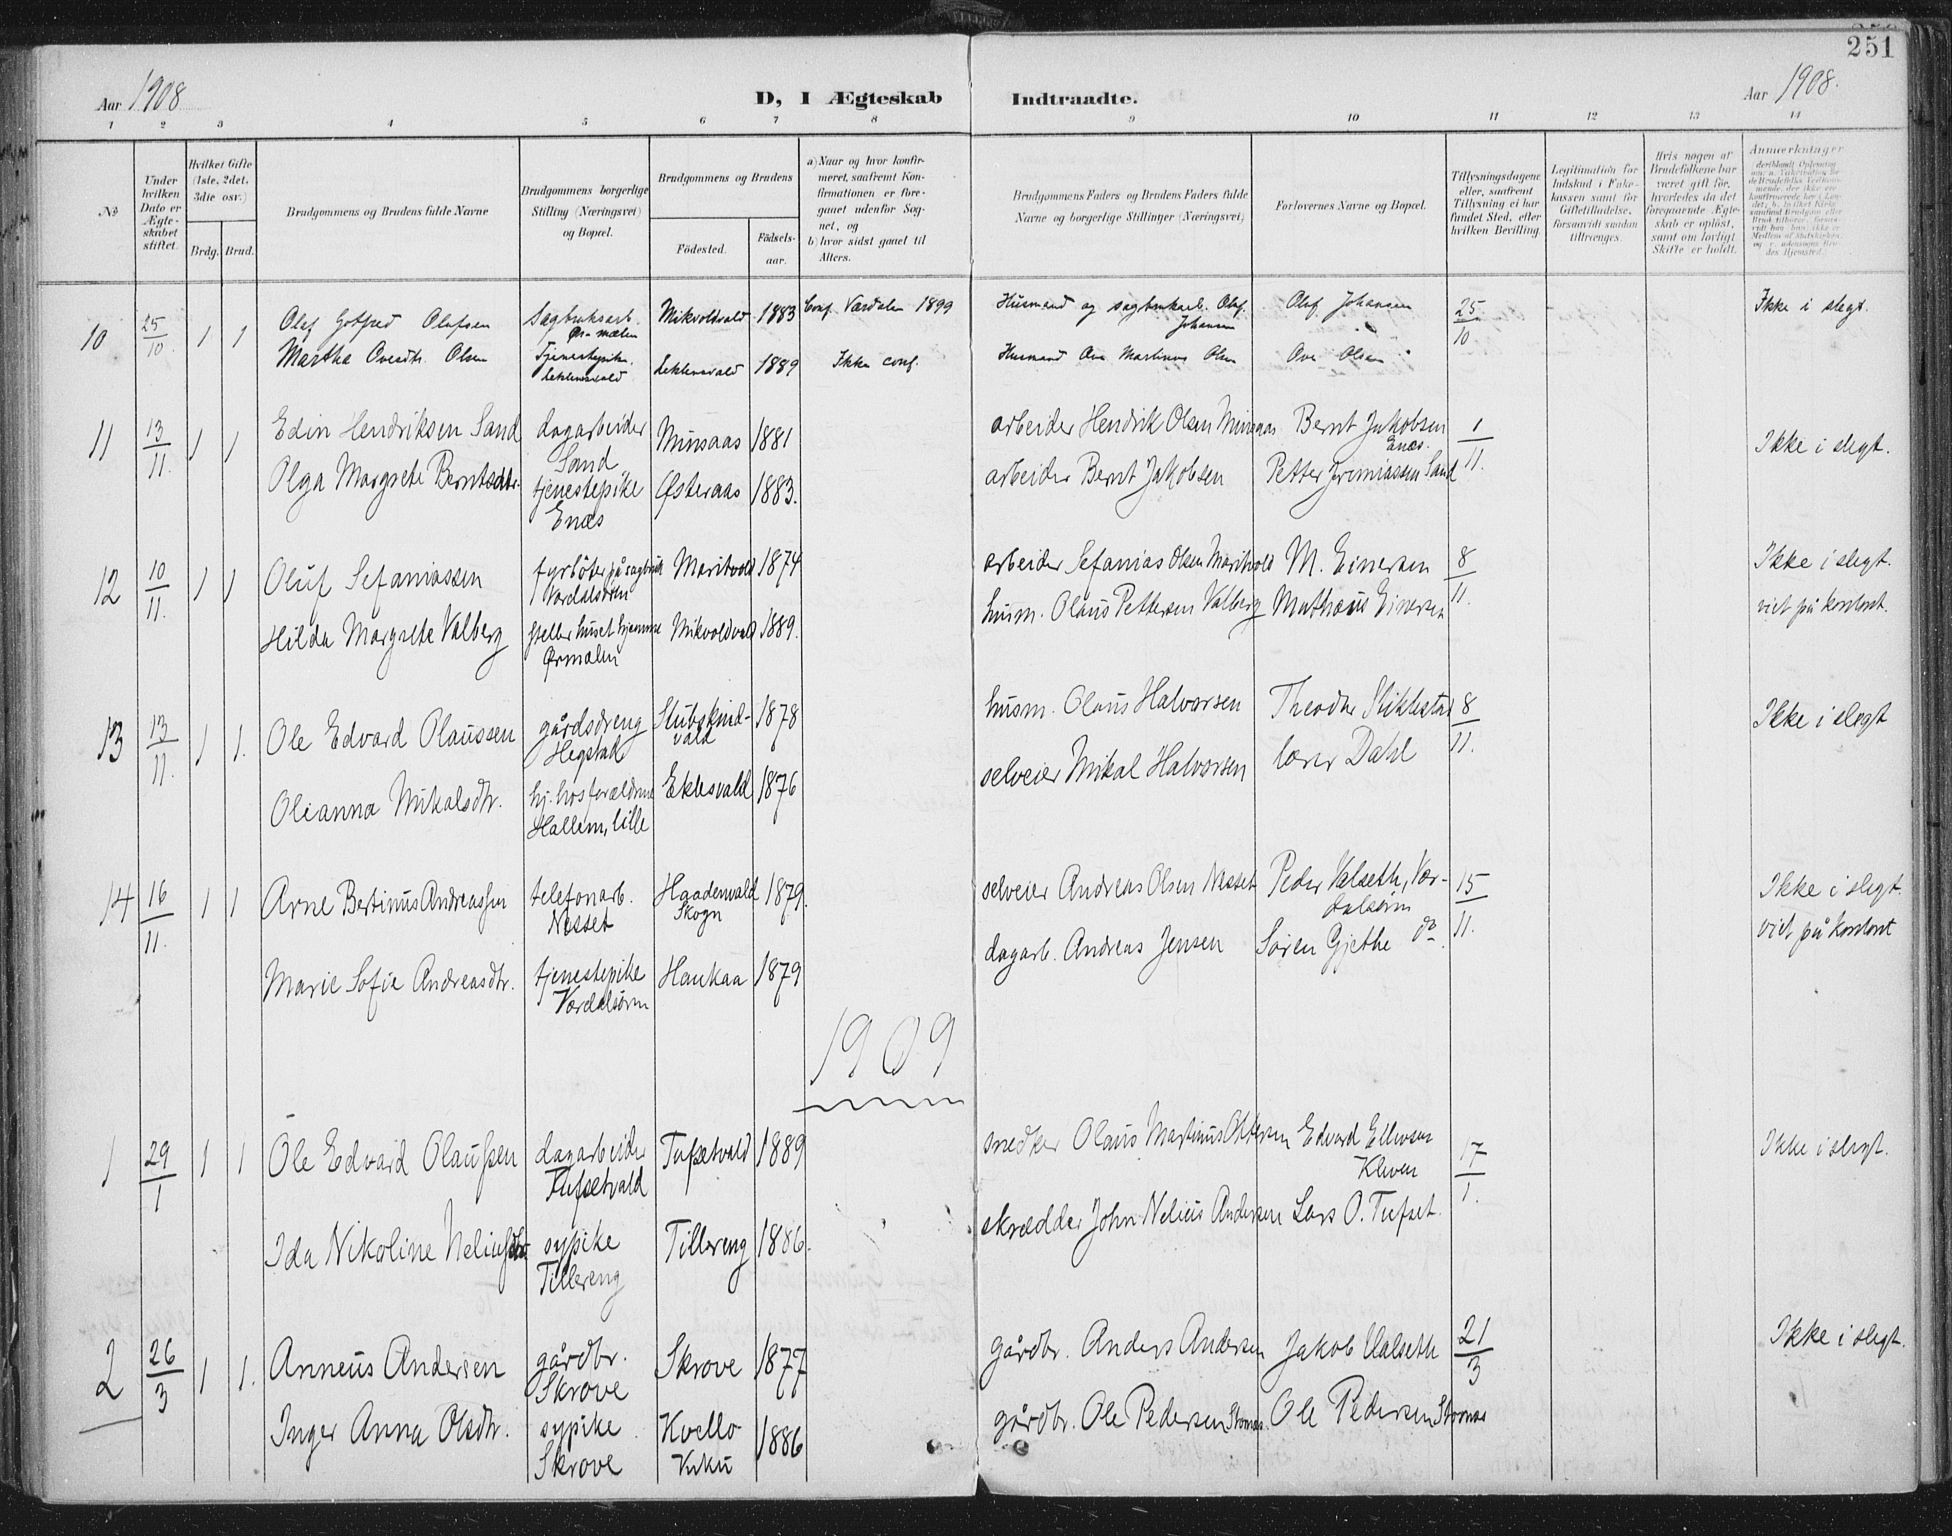 251
Aar 1908
D, I Ægteskab Indtraadte.
Aar 1908.
1 2 3 4 5 6 7 8 9 10 11 12 13 14
No
Under hvilken Dato er Ægteskabet stiftet.
Hvilket Gifte (1ste, 2det, 3die osv.)
Brdg. Brud.
Brudgommens og Brudens fulde Navne
Brudgommens borgerlige Stilling (Næringsvei) og Bopæl.
Brudgommens og Brudens
Födested.
Födsels-aar.
a) Naar og hvor konfirmeret, saafremt Konfirmationen er foregaaet udenfor Sognet, og
b) hvor sidst gaaet til Alters.
Brudgommens Faders og Brudens Faders fulde Navne og borgerlige Stillinger (Næringsvei)
Forlovernes Navne og Bopæl.
Tillysningsdagene eller, saafremt Tillysning ei har fundet Sted, efter hvilken Bevilling.
Legitimation for Indskud i Enkekassen samt for Giftetilladelse, forsaavidt saadan tiltrænges.
Hvis nogen af Brudefolkene har været gift för, hvorledes da det foregaaende Ægteskab er oplöst, samt om lovligt Skifte er holdt.
Anmærkninger
10 25/10 1 1 Olaf Gotfred Olafsen Sagbruksarb. Ør-mælen Mikvoldvald 1883 Conf. Værdalen 1899 Husmand og sagbrukarb. Olaf Johansen Olaf Johansen 25/10 Ikke i slegt.
Martha Ovesdtr. Olsen Tjenestepike 1889 Ikke conf. Husmand Ove Martinus Olsen Ove Olsen
11 13/11. 1 1 Edin Hendriksen Sand dagarbeider Sand Minsaas 1881 arbeider Hendrik Olsen Minsaas Bernt Jakobsen Enæs. 1/11. Ikke i slegt.
Olga Margrete Berntsdtr. tjenestepike Enæs Østeraas 1883. arbeider Bernt Jakobsen Petter Jeremiassen Sand
12 10/11. 1 1 Oluf Sefaniassen fyrbøter på sagbruk Værdalsøren Maritvold 1874 arbeider Sefanias Olsen Maritvold M. Einersen 8/11. Ikke i slegt. viet på kontoret.
Hilda Margrete Valberg steller huset hjemme Ørmælen Mikvoldvald 1889. husm. Olaus Pettersen Valberg Mathæus Einersen
13 13/11. 1 1. Ole Edvard Olaussen gårdsdreng Hegstad Stubskindvald 1878 husm. Olaus Halvorsen Theodor Stiklestad 8/11. Ikke i slegt
Olianna Mikalsdtr. hj. hos forældrene Hallem, lille Eklesvald 1876 selveier Mikal Halvorsen lærer Dahl
14 16/11. 1 1 Arne Bertinus Andreassen telefonarb. Nesset Haadenvald Skogn 1879. selveier Andreas Olsen Nesset Peder Valseth, Værdalsøren 15/11. Ikke i slegt. viet på kontoret
Marie Sofie Andreasdtr. tjenestepike Værdalsøren Haukaa 1879 dagarb. Andreas Jensen Søren Gjethe do
1909
1 29/1 1 1 Ole Edvard Olaussen dagarbeider Tufsetvald Tufsetvald 1889 snedker Olaus Martinus Ottersen Edvard Ellevsen Kleven 17/1. Ikke i slegt.
Ida Nikoline Neliusdtr sypike Tillereng Tillereng 1886. skrædder John Nelius Andersen Lars O. Tufset.
2 26/3 1 1. Anneus Andersen gårdbr. Skrove Skrove 1877 gårdbr. Anders Andersen Jakob Valseth 21/3 Ikke i slegt.
Inger Anna Olsdtr. sypike Skrove Kvello 1886 gårdbr. Ole Pedersen Ole Pedersen